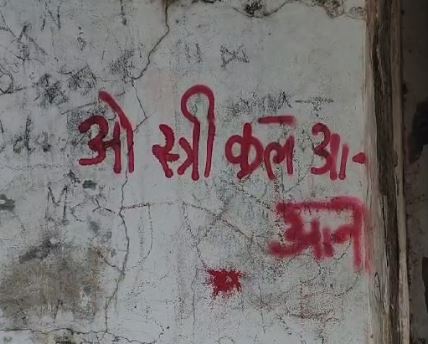 ओ स्त्री कल आ-
आना